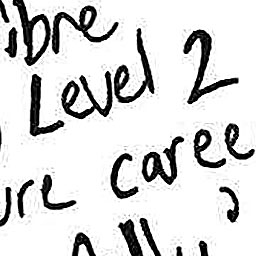 ibre
Level 2
ure caree